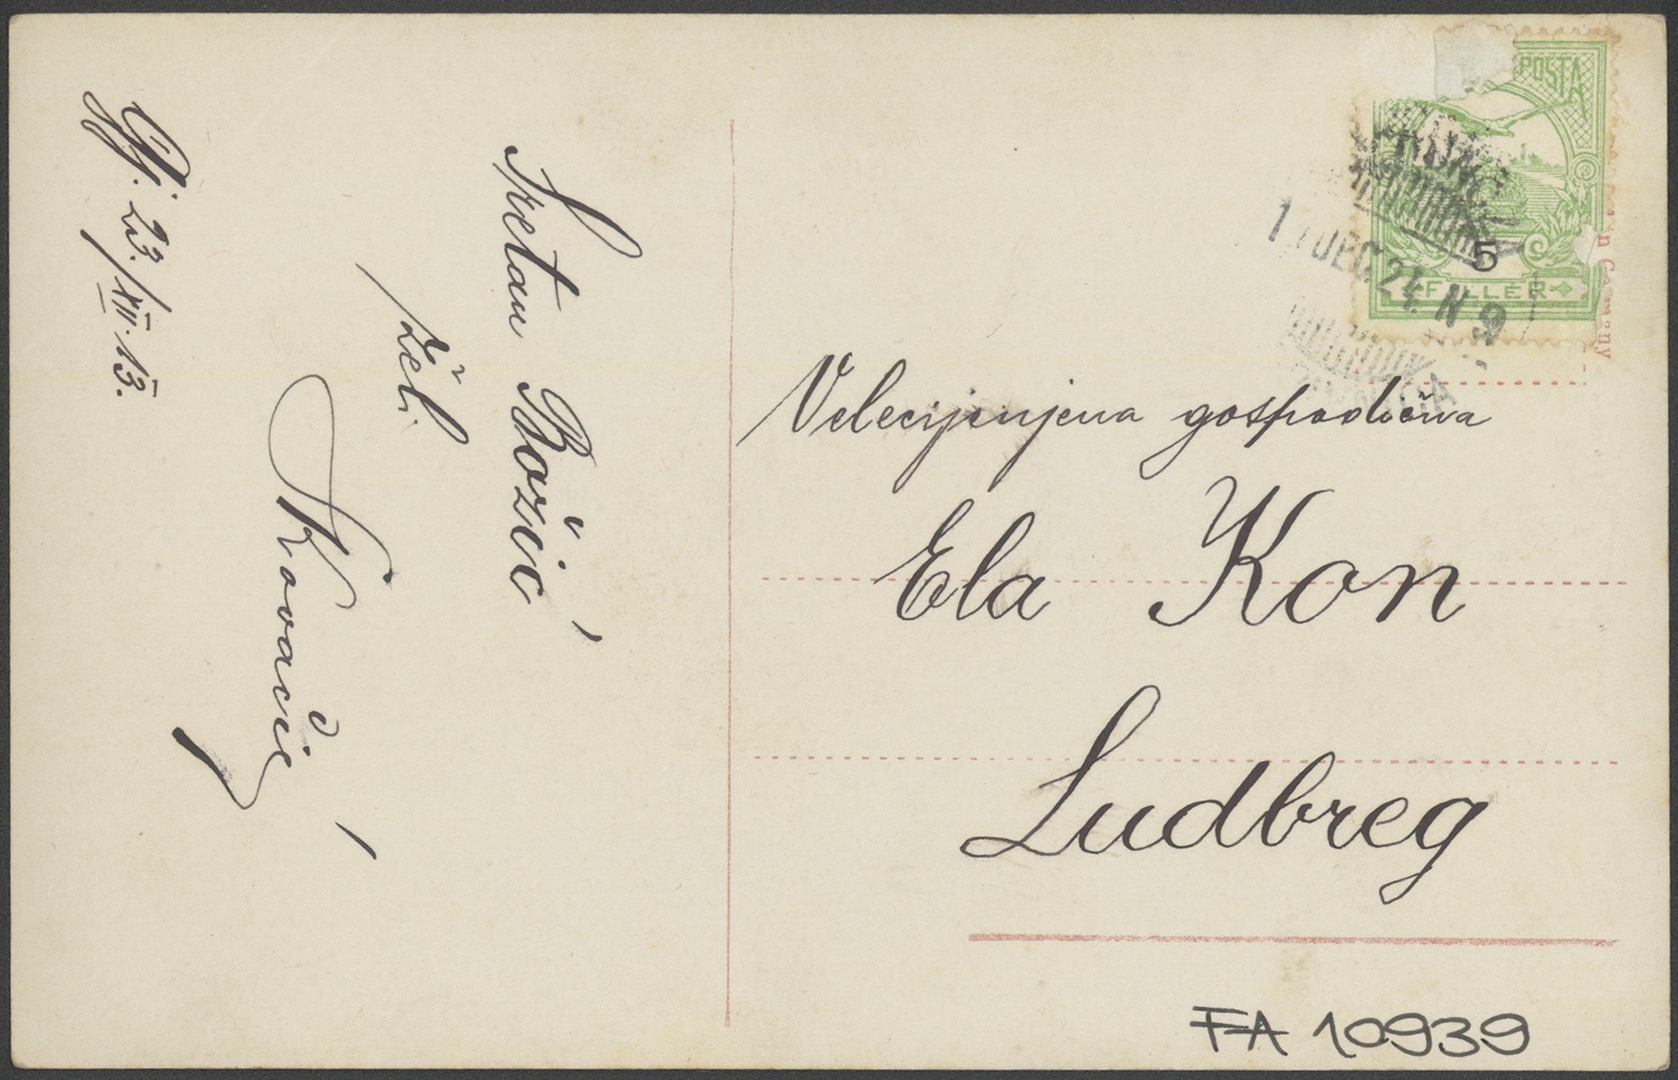 Gj. 23./XII. 13.
Sretan Božić
žel.
Kovačić
POSTA
5
FILLER
DEC 24 N 9
Velecijenjena gospodična
Ela Kon
Ludbreg
FA 10939